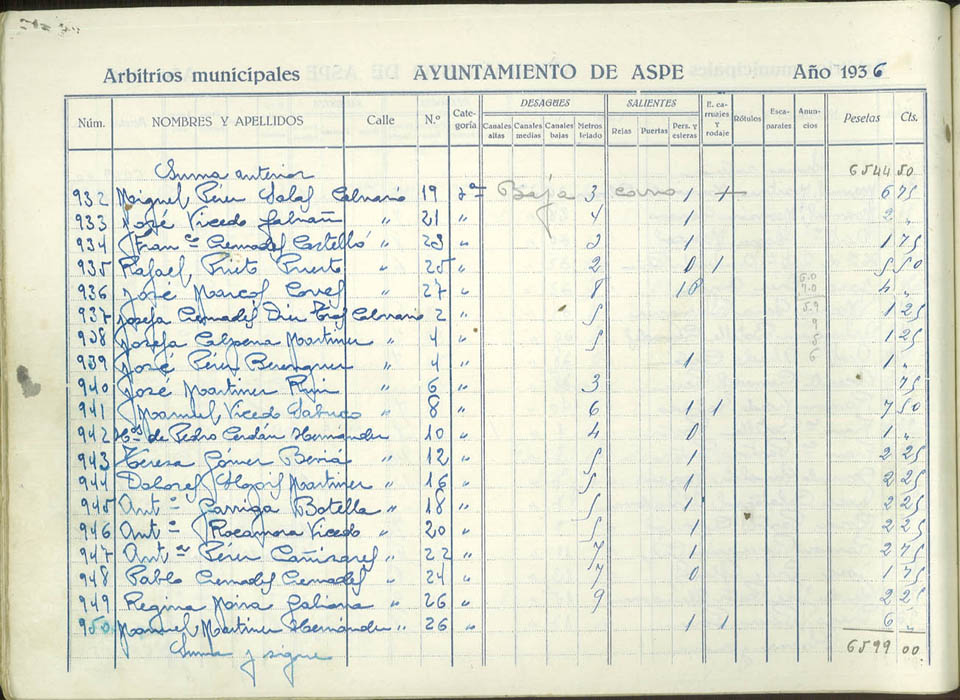 Arbitrios municipales AYUNTAMIENTO DE ASPE Año 1936
Núm. NOMBRES Y APELLIDOS Calle N.º Cate-goría DESAGUES Canales altas Canales medias Canales bajas Metros telado SALIENTES Rejas Puertas Pers. y esteras E. ca-rruajes y rodaje Rótulos Esca-parates Anun-cios Pesetas Cts.
Suma anterior 6544 50
932 Miguel Pérez Calvario 19 2ª Baja 3 1 + 6 75
933 José Vicedo 21 " 4 1 2 "
934 Fran.co Cremades Castelló " 23 " 3 1 1 75
935 Rafael Prieto Puerto " 25 " 2 0 1 5 50
936 José Marcos Coves " 27 " 8 4 "
937 Josefa Cremades Calvario 2 " 5 1 25
938 Josefa Calpena Martinez " 4 " 5 1 25
939 José Pérez Berenguer " 4 " 1 1 "
940 José Martinez " 6 " 3 75
941 Manuel Vicedo " 8 " 6 1 1 7 50
942 H.os de Pedro Cerdán Hernández 10 " 4 0 1 "
943 Teresa Gómez " 12 " 5 1 2 25
944 Dolores Martinez " 16 " 5 1 2 25
945 Ant.º Garriga Botella " 18 " 5 1 2 25
946 Ant.º Rocamora Vicedo " 20 " 5 1 2 25
947 Ant.º Pérez Cañizares " 22 " 7 1 2 75
948 Pablo Cremades Cremades " 24 " 7 0 1 75
949 Regina Mira Galiana " 26 " 9 2 25
950 Manuel Martinez Hernández " 26 " 1 1 6 "
Suma y sigue 6599 00